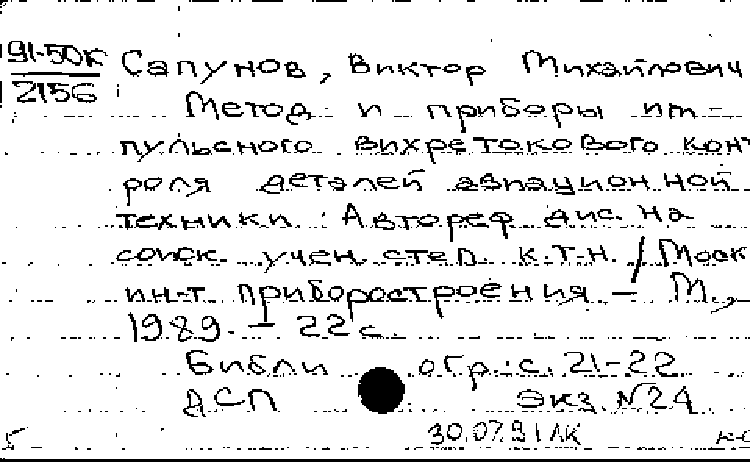 91-50К Сапунов, Виктор Михайлович
2156
Метод и приборы им-
пульсного вихретокового конт
роля деталей авиационной
техники : Автореф дис. на
соиск. учен. степ. к.т.н. / Моск
ин-т приборостроения – М.,
1989. – 22 с.
Библи огр.: с. 21-22
ДСП Экз. №24
30.07.91 ЛК